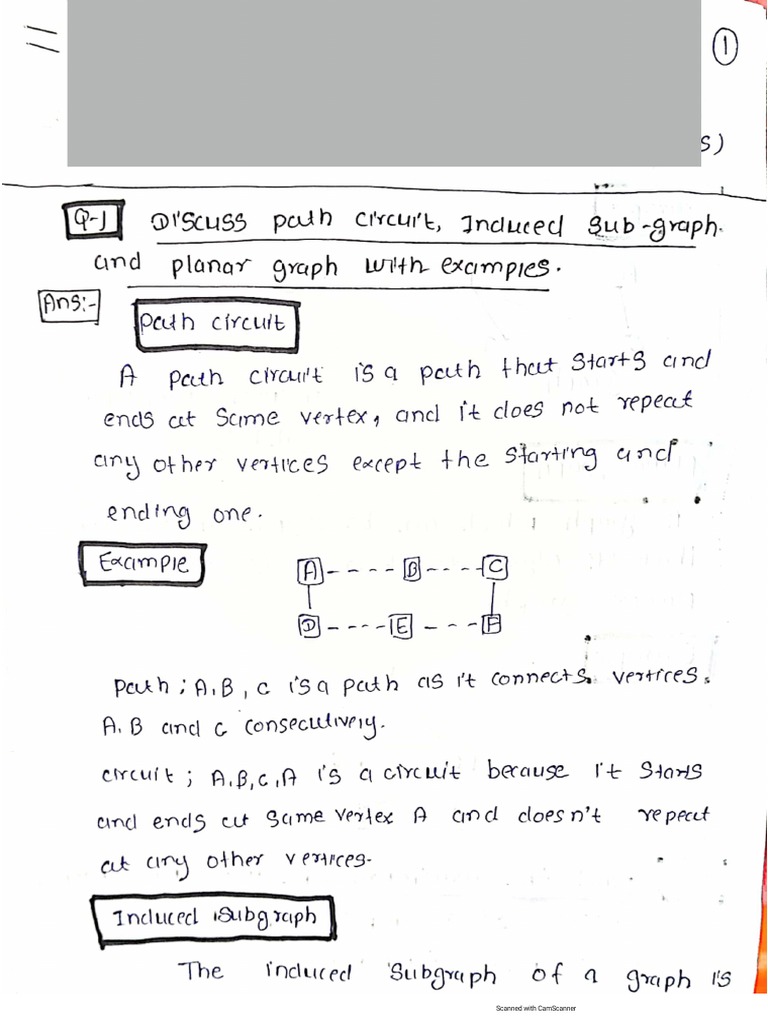 1
s)
Q-1 Discuss path circuit, Induced Sub-graph.
and planar graph with examples.
Ans:-
Path circuit
A path circuit is a path that starts and
ends at same vertex, and it does not repeat
any other vertices except the starting and
ending one.
Example
A B C
D E F
Path ; A, B, C is a path as it connects vertices.
A, B and C consecutively.
circuit ; A, B, C, A is a circuit because it starts
and ends at same vertex A and doesn't repeat
at any other vertices.
Induced Subgraph
The induced subgraph of a graph is
Scanned with CamScanner